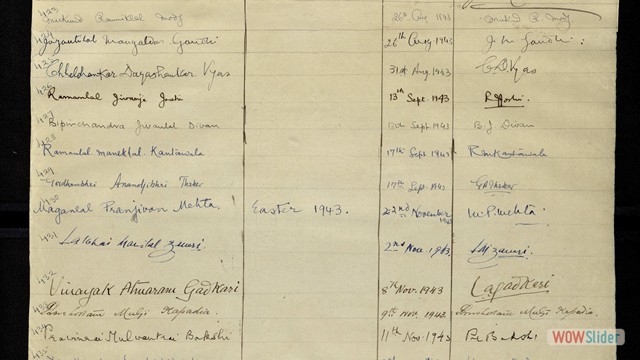 423 Ramniklal Modi 26th Aug. 1943 R. Modi
424 Jayantilal Mangaldas Gandhi 26th Aug 1943 J. M. Gandhi
425 Chhelshanker Dayashanker Vyas 31st Aug. 1943 C. D. Vyas
426 Ramanlal Jivanji Joshi 13th Sept. 1943 R J Joshi.
427 Bipinchandra Jivanlal Divan 13th Sept. 1943 B. J. Divan
428 Ramanlal Maneklal Kantawala 17th Sept. 1943 R. M. Kantawala
429 Gordhanbhai Anandjibhai Thaker 17th Sept. 1943 G A Thaker
430 Maganlal Pranjivan Mehta. Easter 1943. 22nd November 1943 M. P. Mehta
431 2nd Nov. 1943
432 Vinayak Atmaram Gadkari 8th Nov. 1943 Gadkari
433 Mulji Kapadia 9th Nov. 1943 Mulji Kapadia
Mulvantrai Bakshi 11th Nov. 1943 Bakshi
WOWSlider